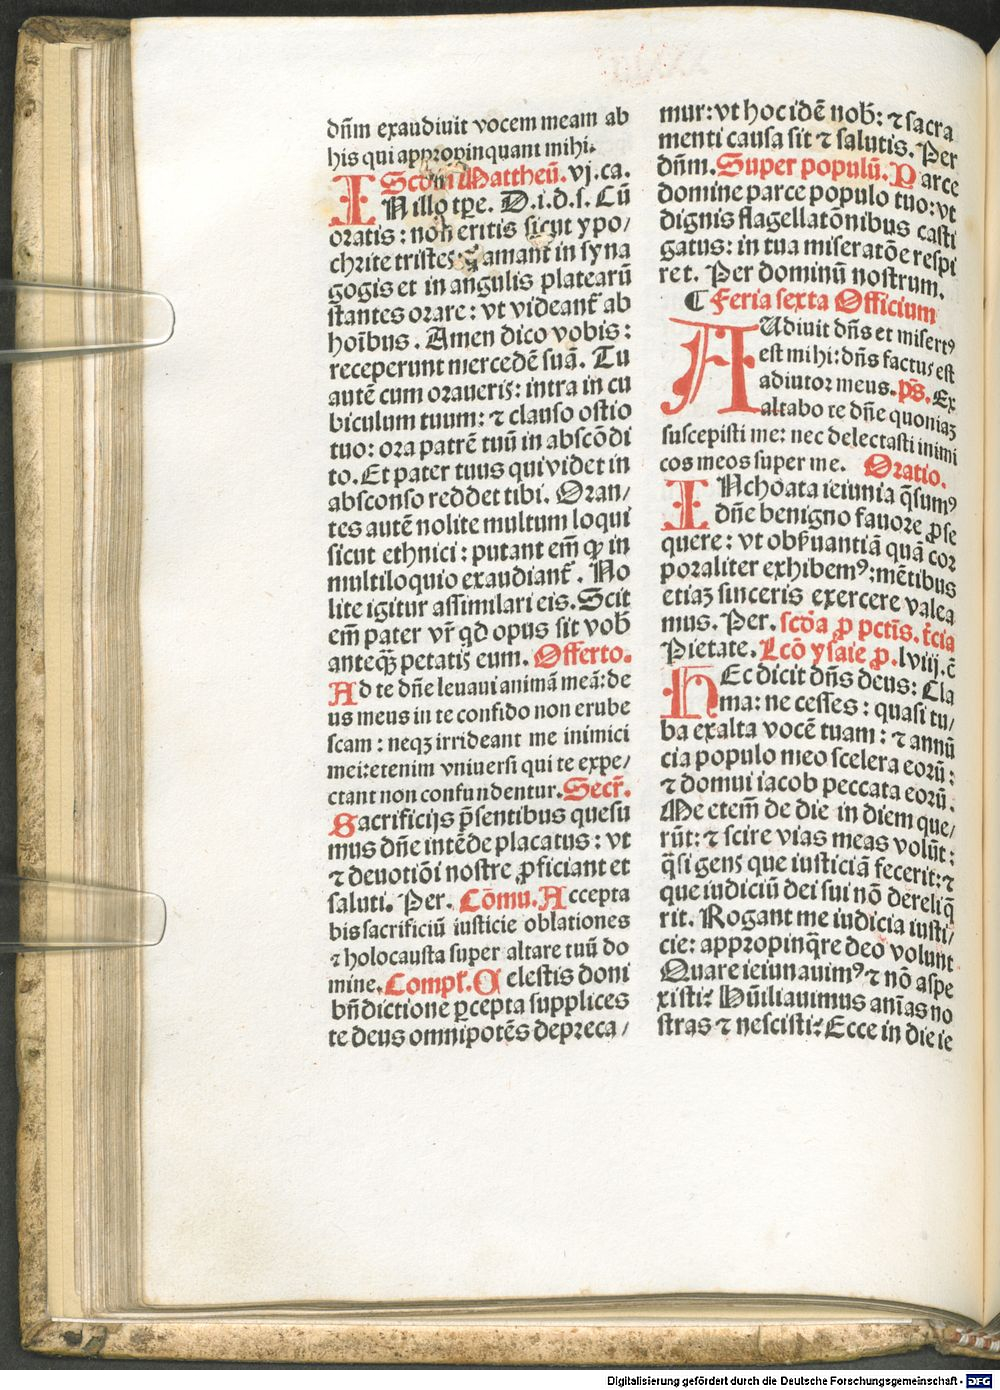 dn̄m exaudiuit vocem meam ab
his qui appropinquant mihi.
Scd̄m Mattheū. vj. ca.
IN illo tꝑe. D. i. d. s. Cū
oratis: non eritis sicut ypo/
chrite tristes: q̄ amant in syna
gogis et in angulis platearū
stantes orare: vt videant᷑ ab
hoı̄bus. Amen dico vobis:
receperunt mercedē suā. Tu
autē cum oraueris: intra in cu
biculum tuum: ⁊ clauso ostio
tuo: ora patrē tuū in abscōdi
to. Et pater tuus qui videt in
absconso reddet tibi. Oran/
tes autē nolite multum loqui
sicut ethnici: putant em̄ ꝙ in
multiloquio exaudiant᷑. No
lite igitur assimilari eis. Scit
em̄ pater vr̄ qd̄ opus sit vob̄
anteqꝫ̄ petatis eum. Offerto.
Ad te dn̄e leuaui animā meā: de
us meus in te confido non erube
scam: neqꝫ irrideant me inimici
mei: etenim vniuersi qui te expe/
ctant non confundentur. Secr̄.
Sacrificijs p̄sentibus quesu
mus dn̄e intēde placatus: vt
⁊ deuotiōi nostre ꝓficiant et
saluti. Per. Cōmu. Accepta
bis sacrificiū iusticie oblationes
⁊ holocausta super altare tuū do
mine. Compl̄. Celestis doni
bn̄dictione ꝑcepta supplices
te deus omnipotēs depreca/
mur: vt hoc idē nob̄: ⁊ sacra
menti causa sit ⁊ salutis. Per
dn̄m. Super populū. Parce
domine parce populo tuo: vt
dignis flagellatōnibus casti
gatus: in tua miseratōe respi
ret. Per dominū nostrum.
¶ Feria sexta Officium
AUdiuit dn̄s et misertꝰ
est mihi: dn̄s factus est
adiutor meus. ps̄. Ex
altabo te dn̄e quoniaꝫ
suscepisti me: nec delectasti inimi
cos meos super me. Oratio.
INchoata ieiunia q̄sumꝰ
dn̄e benigno fauore ꝓse
quere: vt obẜuantiā quā cor
poraliter exhibemꝰ: mētibus
etiaꝫ sinceris exercere valea
mus. Per. scd̄a ꝓ pctīs. t̄cia
Pietate. Lcō ysaie ꝓ. lviij. c̄
HEc dicit dn̄s deus: Cla
ma: ne cesses: quasi tu/
ba exalta vocē tuam: ⁊ annū
cia populo meo scelera eorū:
⁊ domui iacob peccata eorū.
Me etem̄ de die in diem que/
rūt: ⁊ scire vias meas volūt:
q̄si gens que iusticiā fecerit: ⁊
que iudiciū dei sui nō dereliq̄
rit. Rogant me iudicia iusti/
cie: appropinq̄re deo volunt
Quare ieiunauimꝰ ⁊ nō aspe
xisti? Hūiliauimus anīas no
stras ⁊ nescisti? Ecce in die ie
Digitalisierung gefördert durch die Deutsche Forschungsgemeinschaft - DFG